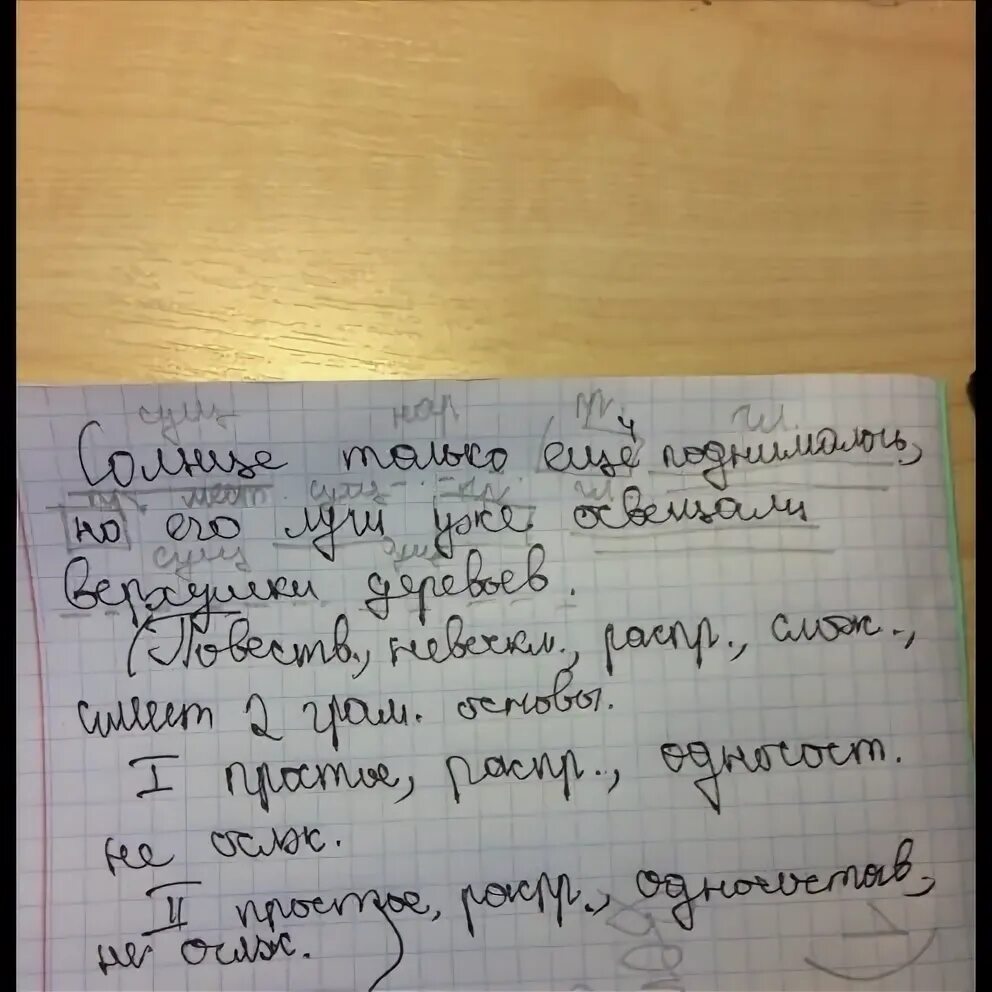 сущ нар гл.
Солнце только ещё поднималось,
мест. сущ. гл
но его лучи уже освещали
сущ сущ
верхушки деревьев.
(Повеств., невоскл., распр., слож.,
имеет 2 грам. основы.
I простое, распр., односост.
не ослж.
II простое, распр., односостав,
не ослж.)